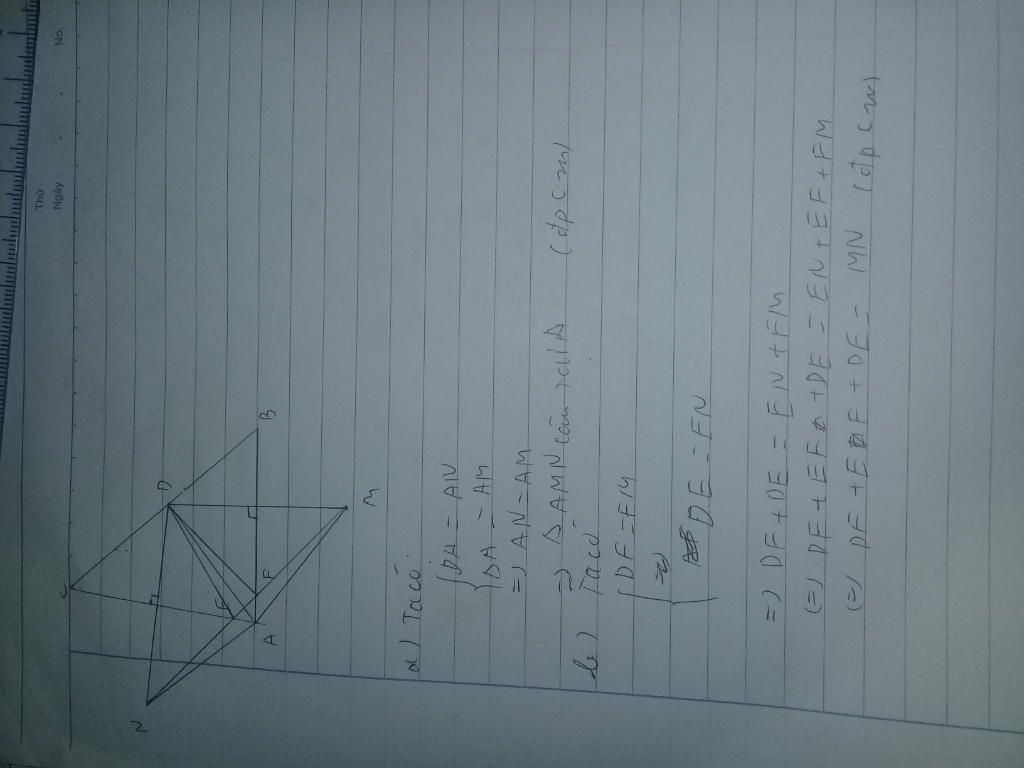 Thứ
Ngày
No.
C
D
B
N
E
F
A
M
a) Ta có
{DA = AN
{DA = AM
=) AN = AM
=) Δ AMN cân tại A (đpcm)
b) Ta có
{DF = FM
DE = EN
=) DF + DE = EN + FM
(=) DF + EF + DE = EN + EF + FM
(=) DF + EF + DE = MN (đpcm)